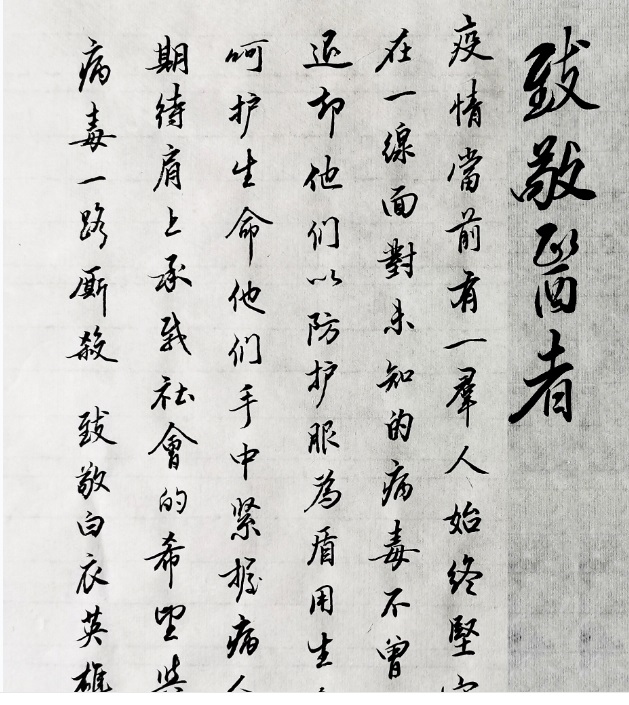 致敬醫者
疫情當前有一羣人始終堅
在一線面對未知的病毒不曾
退却他们以防护服為盾用生
呵护生命他们手中紧握病人
期待肩上承载社會的希望與
病毒一路厮殺 致敬白衣英雄